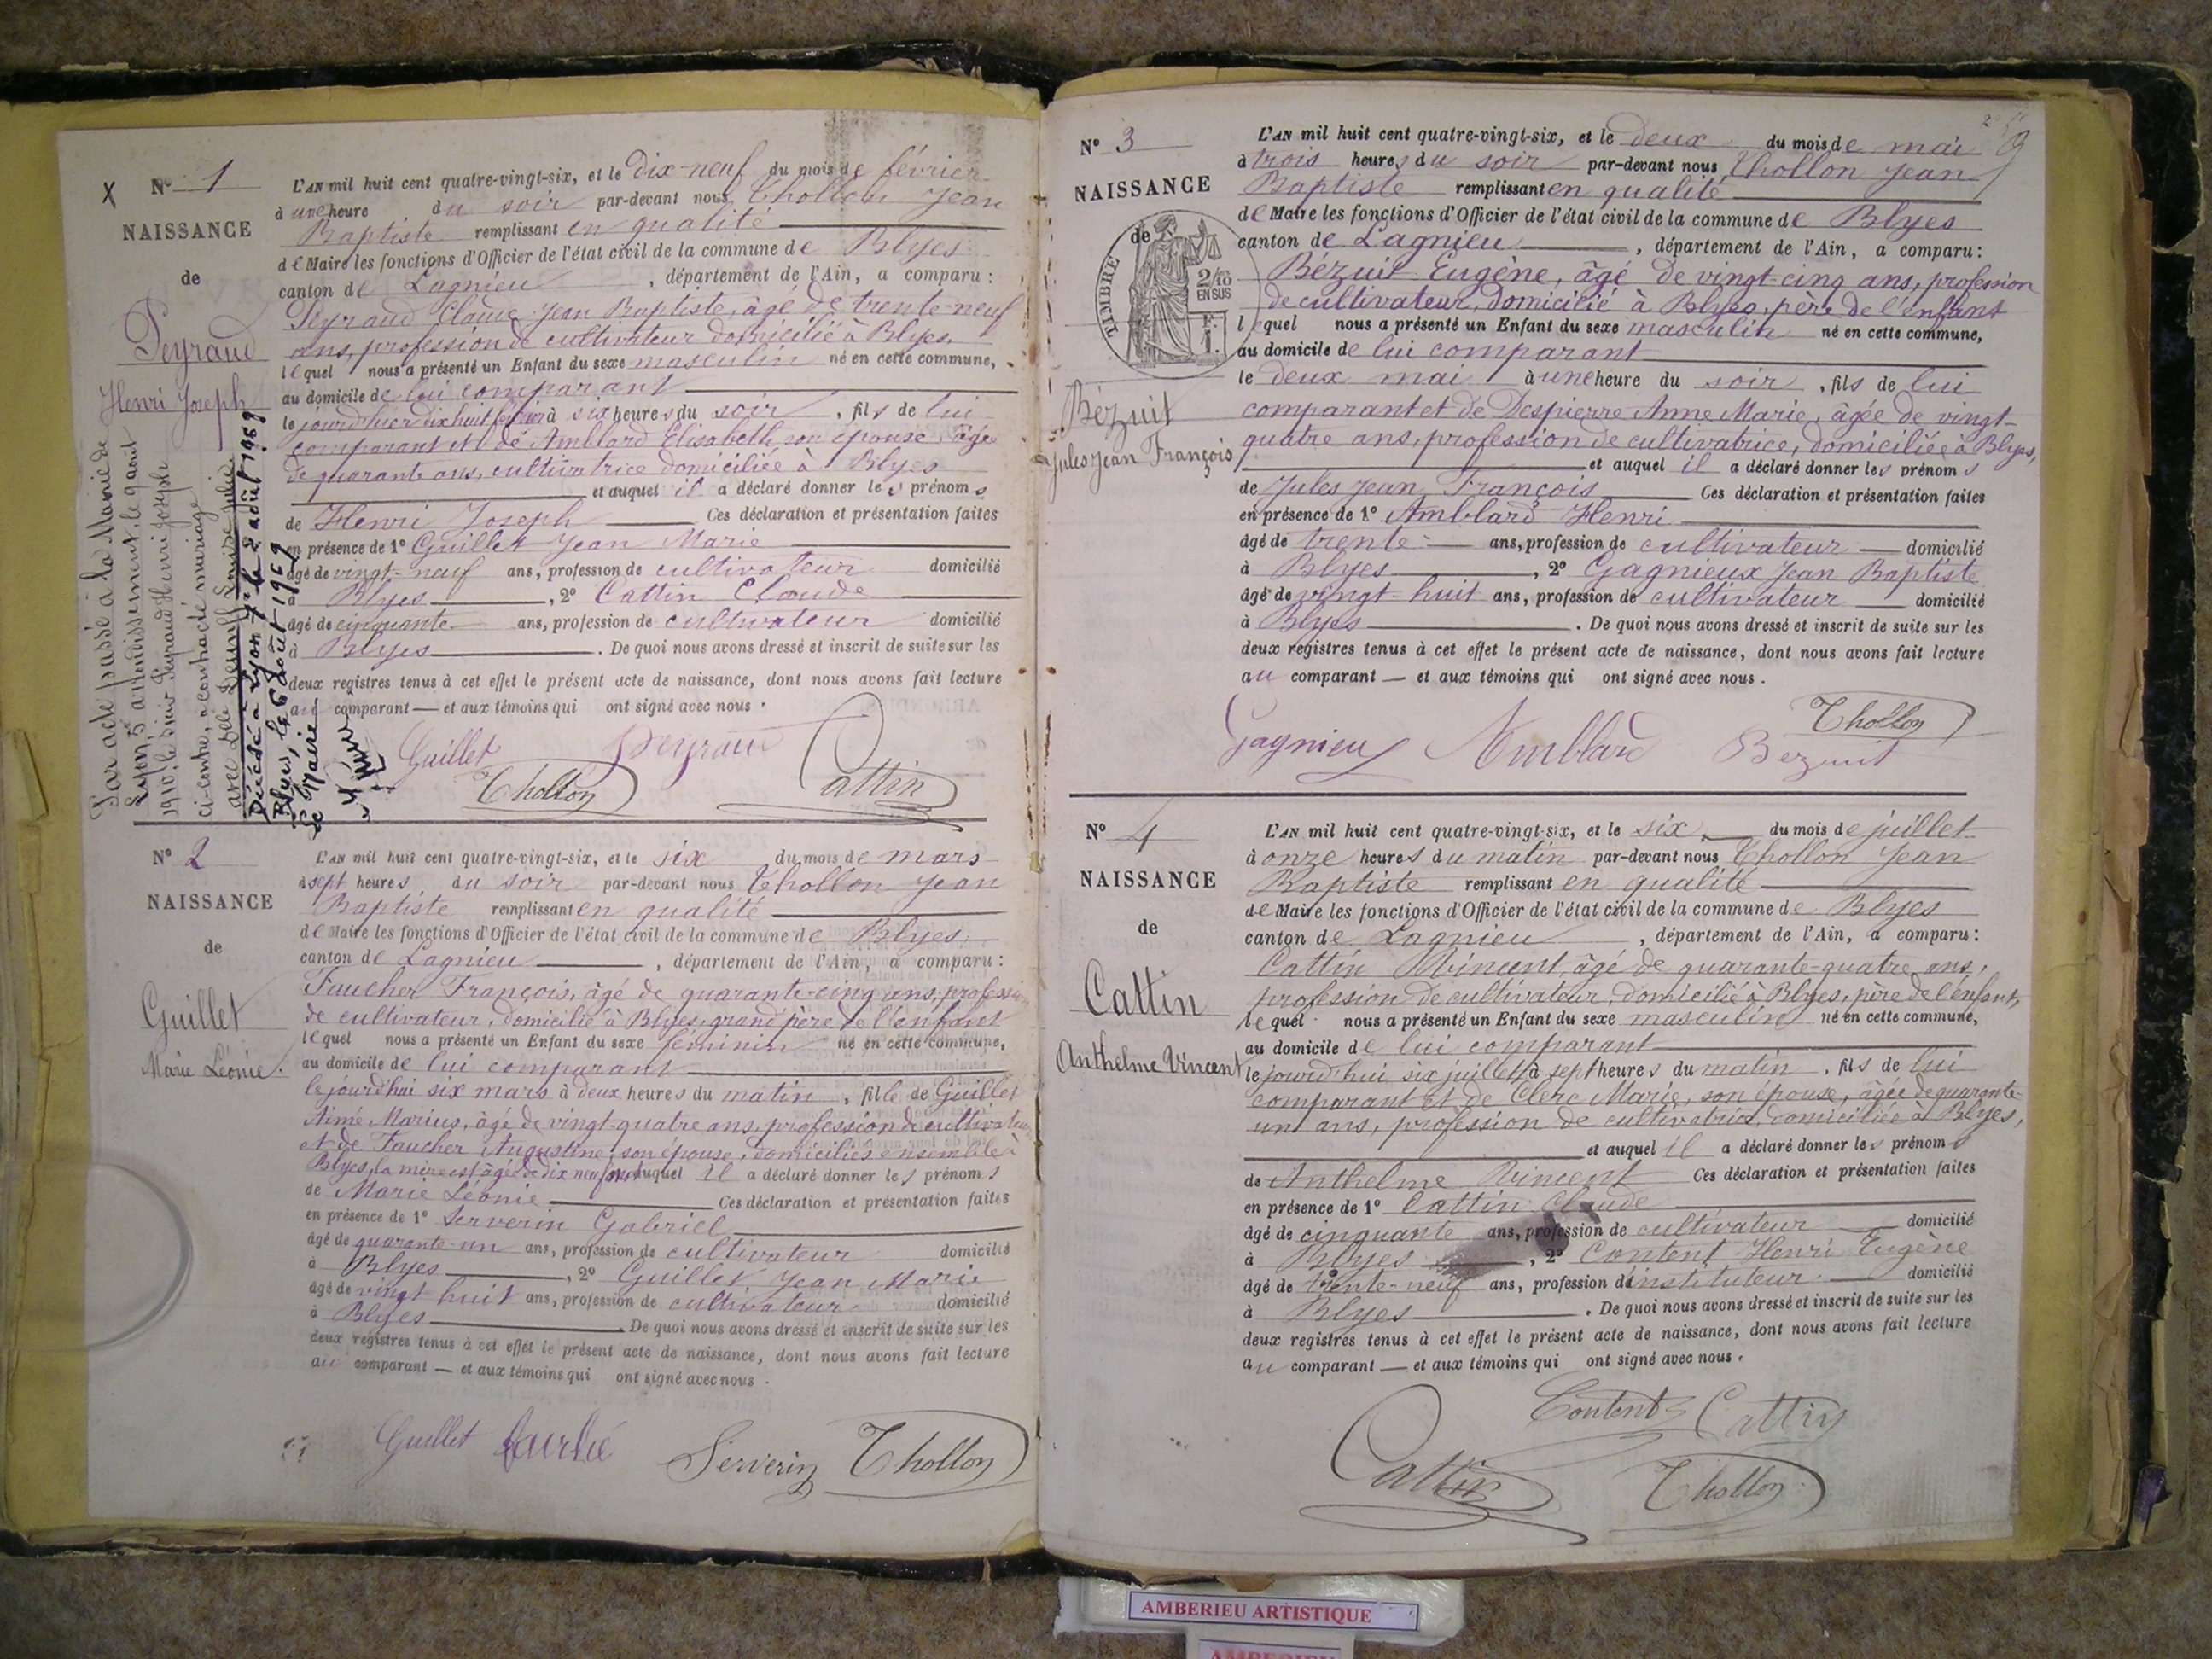 X N° 1
NAISSANCE
de
Peyraud
Henri Joseph
L'AN mil huit cent quatre-vingt-six, et le dix-neuf du mois de février
à une heure du soir par-devant nous Thollon Jean
Baptiste remplissant en qualité
de Maire les fonctions d'Officier de l'état civil de la commune de Blyes
canton de Lagnieu, département de l'Ain, a comparu :
Peyraud Claude Jean Baptiste, âgé de trente-neuf
ans, profession de cultivateur domicilié à Blyes,
lequel nous a présenté un Enfant du sexe masculin né en cette commune,
au domicile de lui comparant
le jourd'hier dix huit février à six heures du soir, fils de lui
comparant et de Amblard Elisabeth son épouse, âgée
de quarante ans, cultivatrice domiciliée à Blyes
et auquel il a déclaré donner les prénoms
de Henri Joseph Ces déclaration et présentation faites
en présence de 1° Guillet Jean Marie
âgé de vingt-neuf ans, profession de cultivateur domicilié
à Blyes, 2° Cattin Claude
âgé de cinquante ans, profession de cultivateur domicilié
à Blyes. De quoi nous avons dressé et inscrit de suite sur les
deux registres tenus à cet effet le présent acte de naissance, dont nous avons fait lecture
au comparant — et aux témoins qui ont signé avec nous.
Guillet Peyraud Cattin
Thollon
Par acte passé à la Mairie de
Lyon, 3e arrondissement, le 9 août
1910, le sieur Peyraud Henri Joseph
ci-contre, a contracté mariage
avec Delle Louise Julie.
Décédé à Lyon 7e le 2 août 1969
Blyes, le 6 août 1969
Le Maire
N° 2
NAISSANCE
de
Guillet
Marie Léonie.
L'AN mil huit cent quatre-vingt-six, et le six du mois de mars
à sept heures du soir par-devant nous Thollon Jean
Baptiste remplissant en qualité
de Maire les fonctions d'Officier de l'état civil de la commune de Blyes
canton de Lagnieu, département de l'Ain, a comparu :
Faucher François, âgé de quarante-cinq ans, profession
de cultivateur, domicilié à Blyes, grand'père de l'enfant
lequel nous a présenté un Enfant du sexe féminin né en cette commune,
au domicile de lui comparant
le jourd'hui six mars à deux heures du matin, fille de Guillet
Aimé Marius, âgé de vingt-quatre ans, profession de cultivateur
et de Faucher Augustine, son épouse, domiciliés ensemble à
Blyes, la mère est âgée de dix neuf ans et auquel il a déclaré donner les prénoms
de Marie Léonie Ces déclaration et présentation faites
en présence de 1° Serverin Gabriel
âgé de quarante-un ans, profession de cultivateur domicilié
à Blyes, 2° Guillet Jean Marie
âgé de vingt huit ans, profession de cultivateur domicilié
à Blyes. De quoi nous avons dressé et inscrit de suite sur les
deux registres tenus à cet effet le présent acte de naissance, dont nous avons fait lecture
au comparant — et aux témoins qui ont signé avec nous.
Guillet Serverin Thollon
N° 3
NAISSANCE
de
TIMBRE
2/10
EN SUS
Bézuit
Jules Jean François
L'AN mil huit cent quatre-vingt-six, et le deux du mois de mai
à trois heures du soir par-devant nous Thollon Jean
Baptiste remplissant en qualité
de Maire les fonctions d'Officier de l'état civil de la commune de Blyes
canton de Lagnieu, département de l'Ain, a comparu :
Bézuit Eugène, âgé de vingt-cinq ans, profession
de cultivateur, domicilié à Blyes, père de l'enfant
lequel nous a présenté un Enfant du sexe masculin né en cette commune,
au domicile de lui comparant
le deux mai à une heure du soir, fils de lui
comparant et de Despierre Anne Marie, âgée de vingt-
quatre ans, profession de cultivatrice, domiciliée à Blyes,
et auquel il a déclaré donner les prénoms
de Jules Jean François Ces déclaration et présentation faites
en présence de 1° Amblard Henri
âgé de trente ans, profession de cultivateur — domicilié
à Blyes, 2° Gagnieux Jean Baptiste
âgé de vingt-huit ans, profession de cultivateur — domicilié
à Blyes. De quoi nous avons dressé et inscrit de suite sur les
deux registres tenus à cet effet le présent acte de naissance, dont nous avons fait lecture
au comparant — et aux témoins qui ont signé avec nous.
Thollon
Gagnieux Amblard Bezuit
N° 4
NAISSANCE
de
Cattin
Anthelme Vincent
L'AN mil huit cent quatre-vingt-six, et le six du mois de juillet
à onze heures du matin par-devant nous Thollon Jean
Baptiste remplissant en qualité
de Maire les fonctions d'Officier de l'état civil de la commune de Blyes
canton de Lagnieu, département de l'Ain, a comparu :
Cattin Vincent, âgé de quarante-quatre ans,
profession de cultivateur, domicilié à Blyes, père de l'enfant,
lequel nous a présenté un Enfant du sexe masculin né en cette commune,
au domicile de lui comparant
le jourd'hui six juillet à sept heures du matin, fils de lui
comparant et de Clerc Marie, son épouse, âgée de quarante-
un ans, profession de cultivatrice, domiciliée à Blyes,
et auquel il a déclaré donner les prénoms
de Anthelme Vincent Ces déclaration et présentation faites
en présence de 1° Cattin Claude
âgé de cinquante ans, profession de cultivateur domicilié
à Blyes, 2° Content Henri Eugène
âgé de trente-neuf ans, profession d'instituteur domicilié
à Blyes. De quoi nous avons dressé et inscrit de suite sur les
deux registres tenus à cet effet le présent acte de naissance, dont nous avons fait lecture
au comparant — et aux témoins qui ont signé avec nous.
Content Cattin
Cattin Thollon
AMBERIEU ARTISTIQUE
AMBERIEU